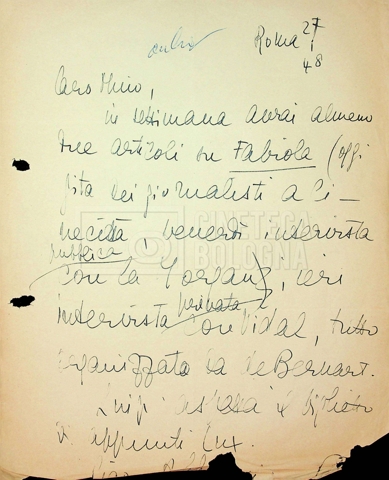 Roma 27
1
48
Caro Mino,
in settimana avrai almeno
tre articoli su Fabiola (oggi
gita dei giornalisti a Ci-
necittà, venerdì intervista
pubblica
con la Morgan), ieri
privata
intervista con Vidal, tutto
organizzato da de Bernart.
Luigi il biglietto
di appunti Lux.
CINETECA
BOLOGNA